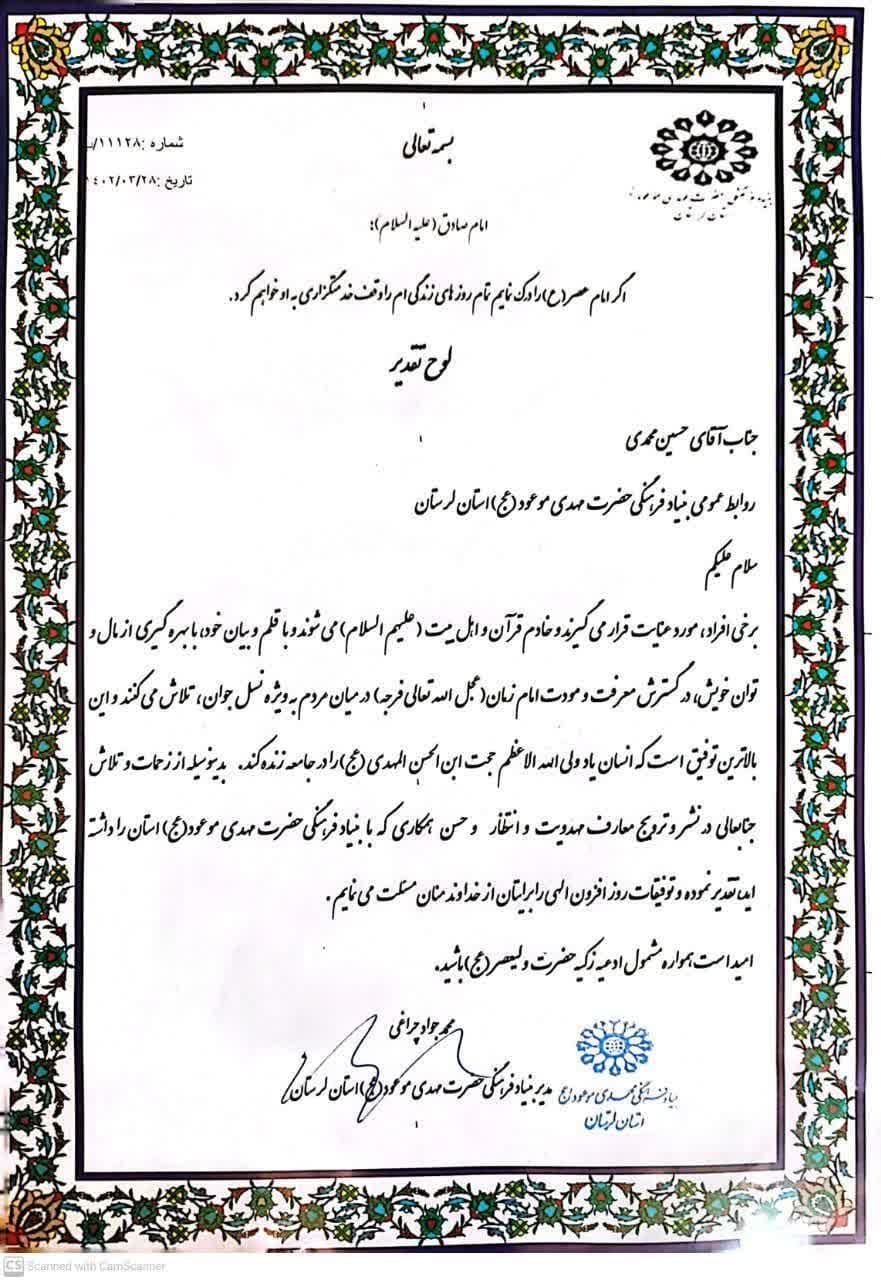 بسمه تعالی
شماره :۱۱۱۲۸/
تاریخ :۱۴۰۲/۰۳/۲۸
امام صادق (علیه السلام):
اگر امام عصر(ع) را درک نمایم تمام روزهای زندگی ام را وقف خدمتگزاری به او خواهم کرد.
لوح تقدیر
جناب آقای حسین محمدی
روابط عمومی بنیاد فرهنگی حضرت مهدی موعود (عج) استان لرستان
سلام علیکم
برخی افراد، مورد عنایت قرار می گیرند و خادم قرآن و اهل بیت (علیهم السلام) می شوند و با قلم و بیان خود، با بهره گیری از مال و
توان خویش، در گسترش معرفت و مودت امام زمان (عجل الله تعالی فرجه) در میان مردم به ویژه نسل جوان، تلاش می کنند و این
بالاترین توفیق است که انسان یاد ولی الله الاعظم حجت ابن الحسن المهدی (عج) را در جامعه زنده کند. بدینوسیله از زحمات و تلاش
جنابعالی در نشر و ترویج معارف مهدویت و انتظار و حسن همکاری که با بنیاد فرهنگی حضرت مهدی موعود (عج) استان را داشته
اید، تقدیر نموده و توفیقات روز افزون الهی را برایتان از خداوند منان مسئلت می نمایم.
امید است همواره مشمول ادعیه زکیه حضرت ولیعصر (عج) باشید.
محمد جواد چراغی
مدیر بنیاد فرهنگی حضرت مهدی موعود (عج) استان لرستان
بنیاد فرهنگی مهدی موعود (عج)
استان لرستان
CS Scanned with CamScanner